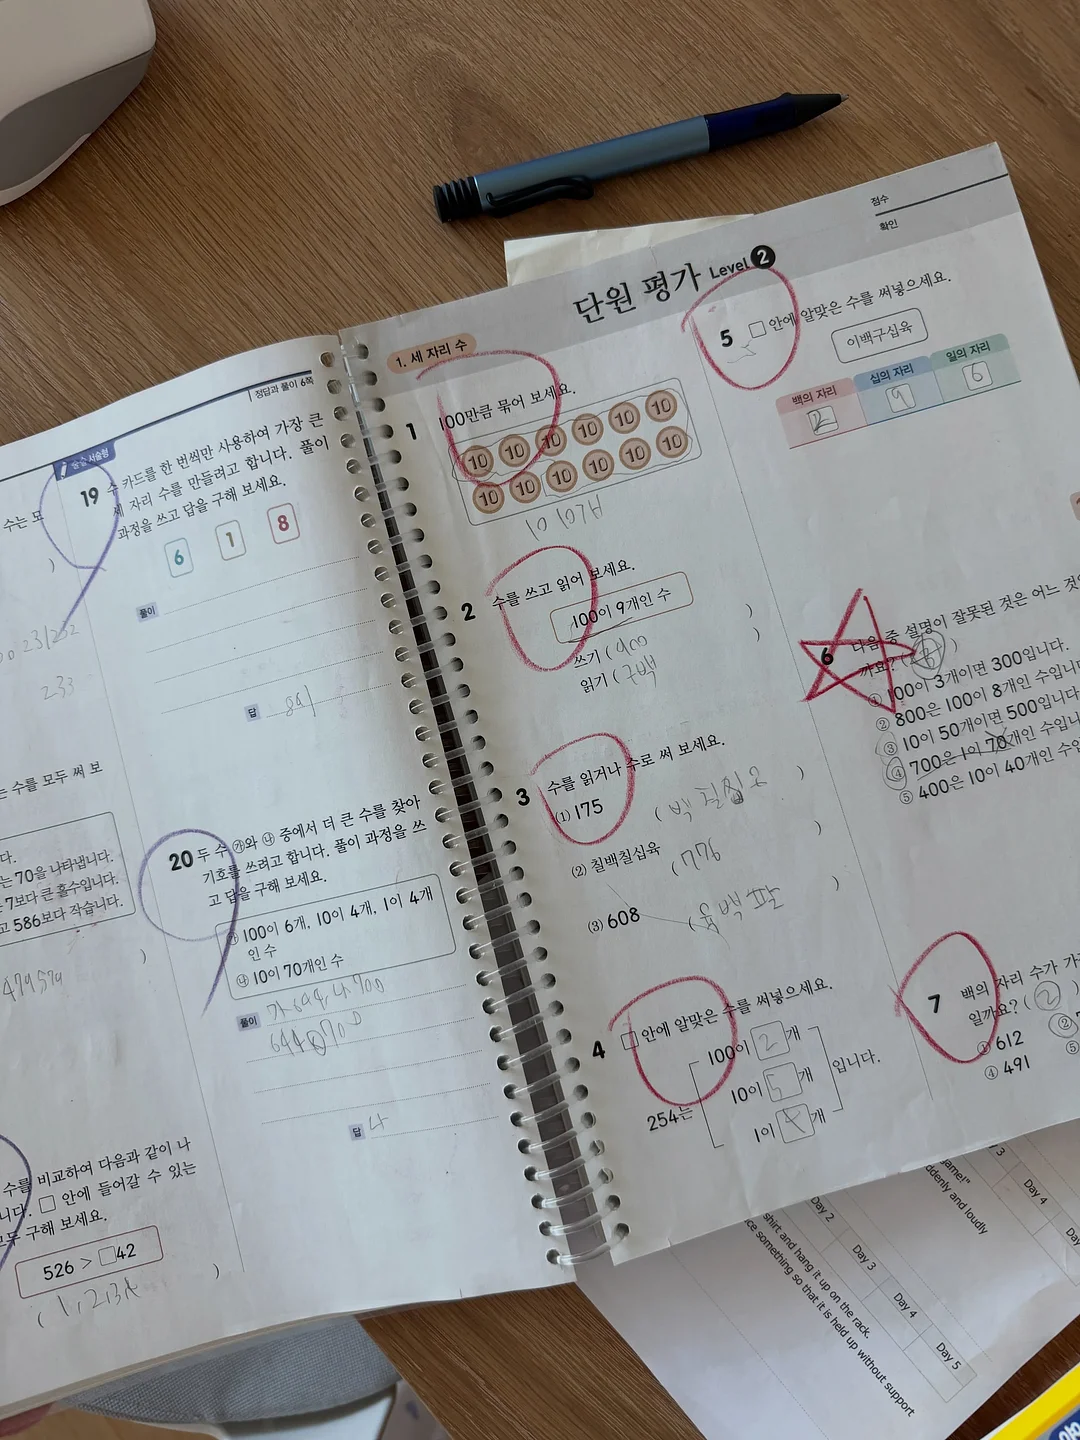 수는 모
)
233
는 수를 모두 써 보
다.
는 70을 나타냅니다.
은 7보다 큰 홀수입니다.
고 586보다 작습니다.
479 579
)
수를 비교하여 다음과 같이 나
니다. □ 안에 들어갈 수 있는
모두 구해 보세요.
526 > □42
(
)
정답과 풀이 6쪽
술술 서술형
19 수 카드를 한 번씩만 사용하여 가장 큰
세 자리 수를 만들려고 합니다. 풀이
과정을 쓰고 답을 구해 보세요.
6 1 8
풀이
답 861
20 두 수 ㉮와 ㉯ 중에서 더 큰 수를 찾아
기호를 쓰려고 합니다. 풀이 과정을 쓰
고 답을 구해 보세요.
㉮ 100이 6개, 10이 4개, 1이 4개
인 수
㉯ 10이 70개인 수
풀이 가 644 나 700
644 700
답 나
단원 평가 Level 2
점수
확인
1. 세 자리 수
1 100만큼 묶어 보세요.
10 10 10 10 10 10
10 10 10 10 10 10
2 수를 쓰고 읽어 보세요.
100이 9개인 수
쓰기 ( 900 )
읽기 ( 구백 )
3 수를 읽거나 수로 써 보세요.
(1) 175 ( 백칠십오 )
(2) 칠백칠십육 ( 776 )
(3) 608 ( 육백팔 )
4 □ 안에 알맞은 수를 써넣으세요.
254는
100이 2 개
10이 5 개
1이 4 개
입니다.
5 □ 안에 알맞은 수를 써넣으세요.
이백구십육
백의 자리 십의 자리 일의 자리
2 9 6
6 다음 중 설명이 잘못된 것은 어느 것
까요? ( 4 )
① 100이 3개이면 300입니다.
② 800은 100이 8개인 수입니다
③ 10이 50개이면 500입니다
④ 700은 1이 70개인 수입니
⑤ 400은 10이 40개인 수입
7 백의 자리 수가 가
일까요? ( 2 )
① 612 ②
④ 491 ⑤
game!"
ddenly and loudly
3
Day 4
Day 2
shirt and hang it up on the rack.
ce something so that it is held up without support
Day 3
Day 4
Day 5